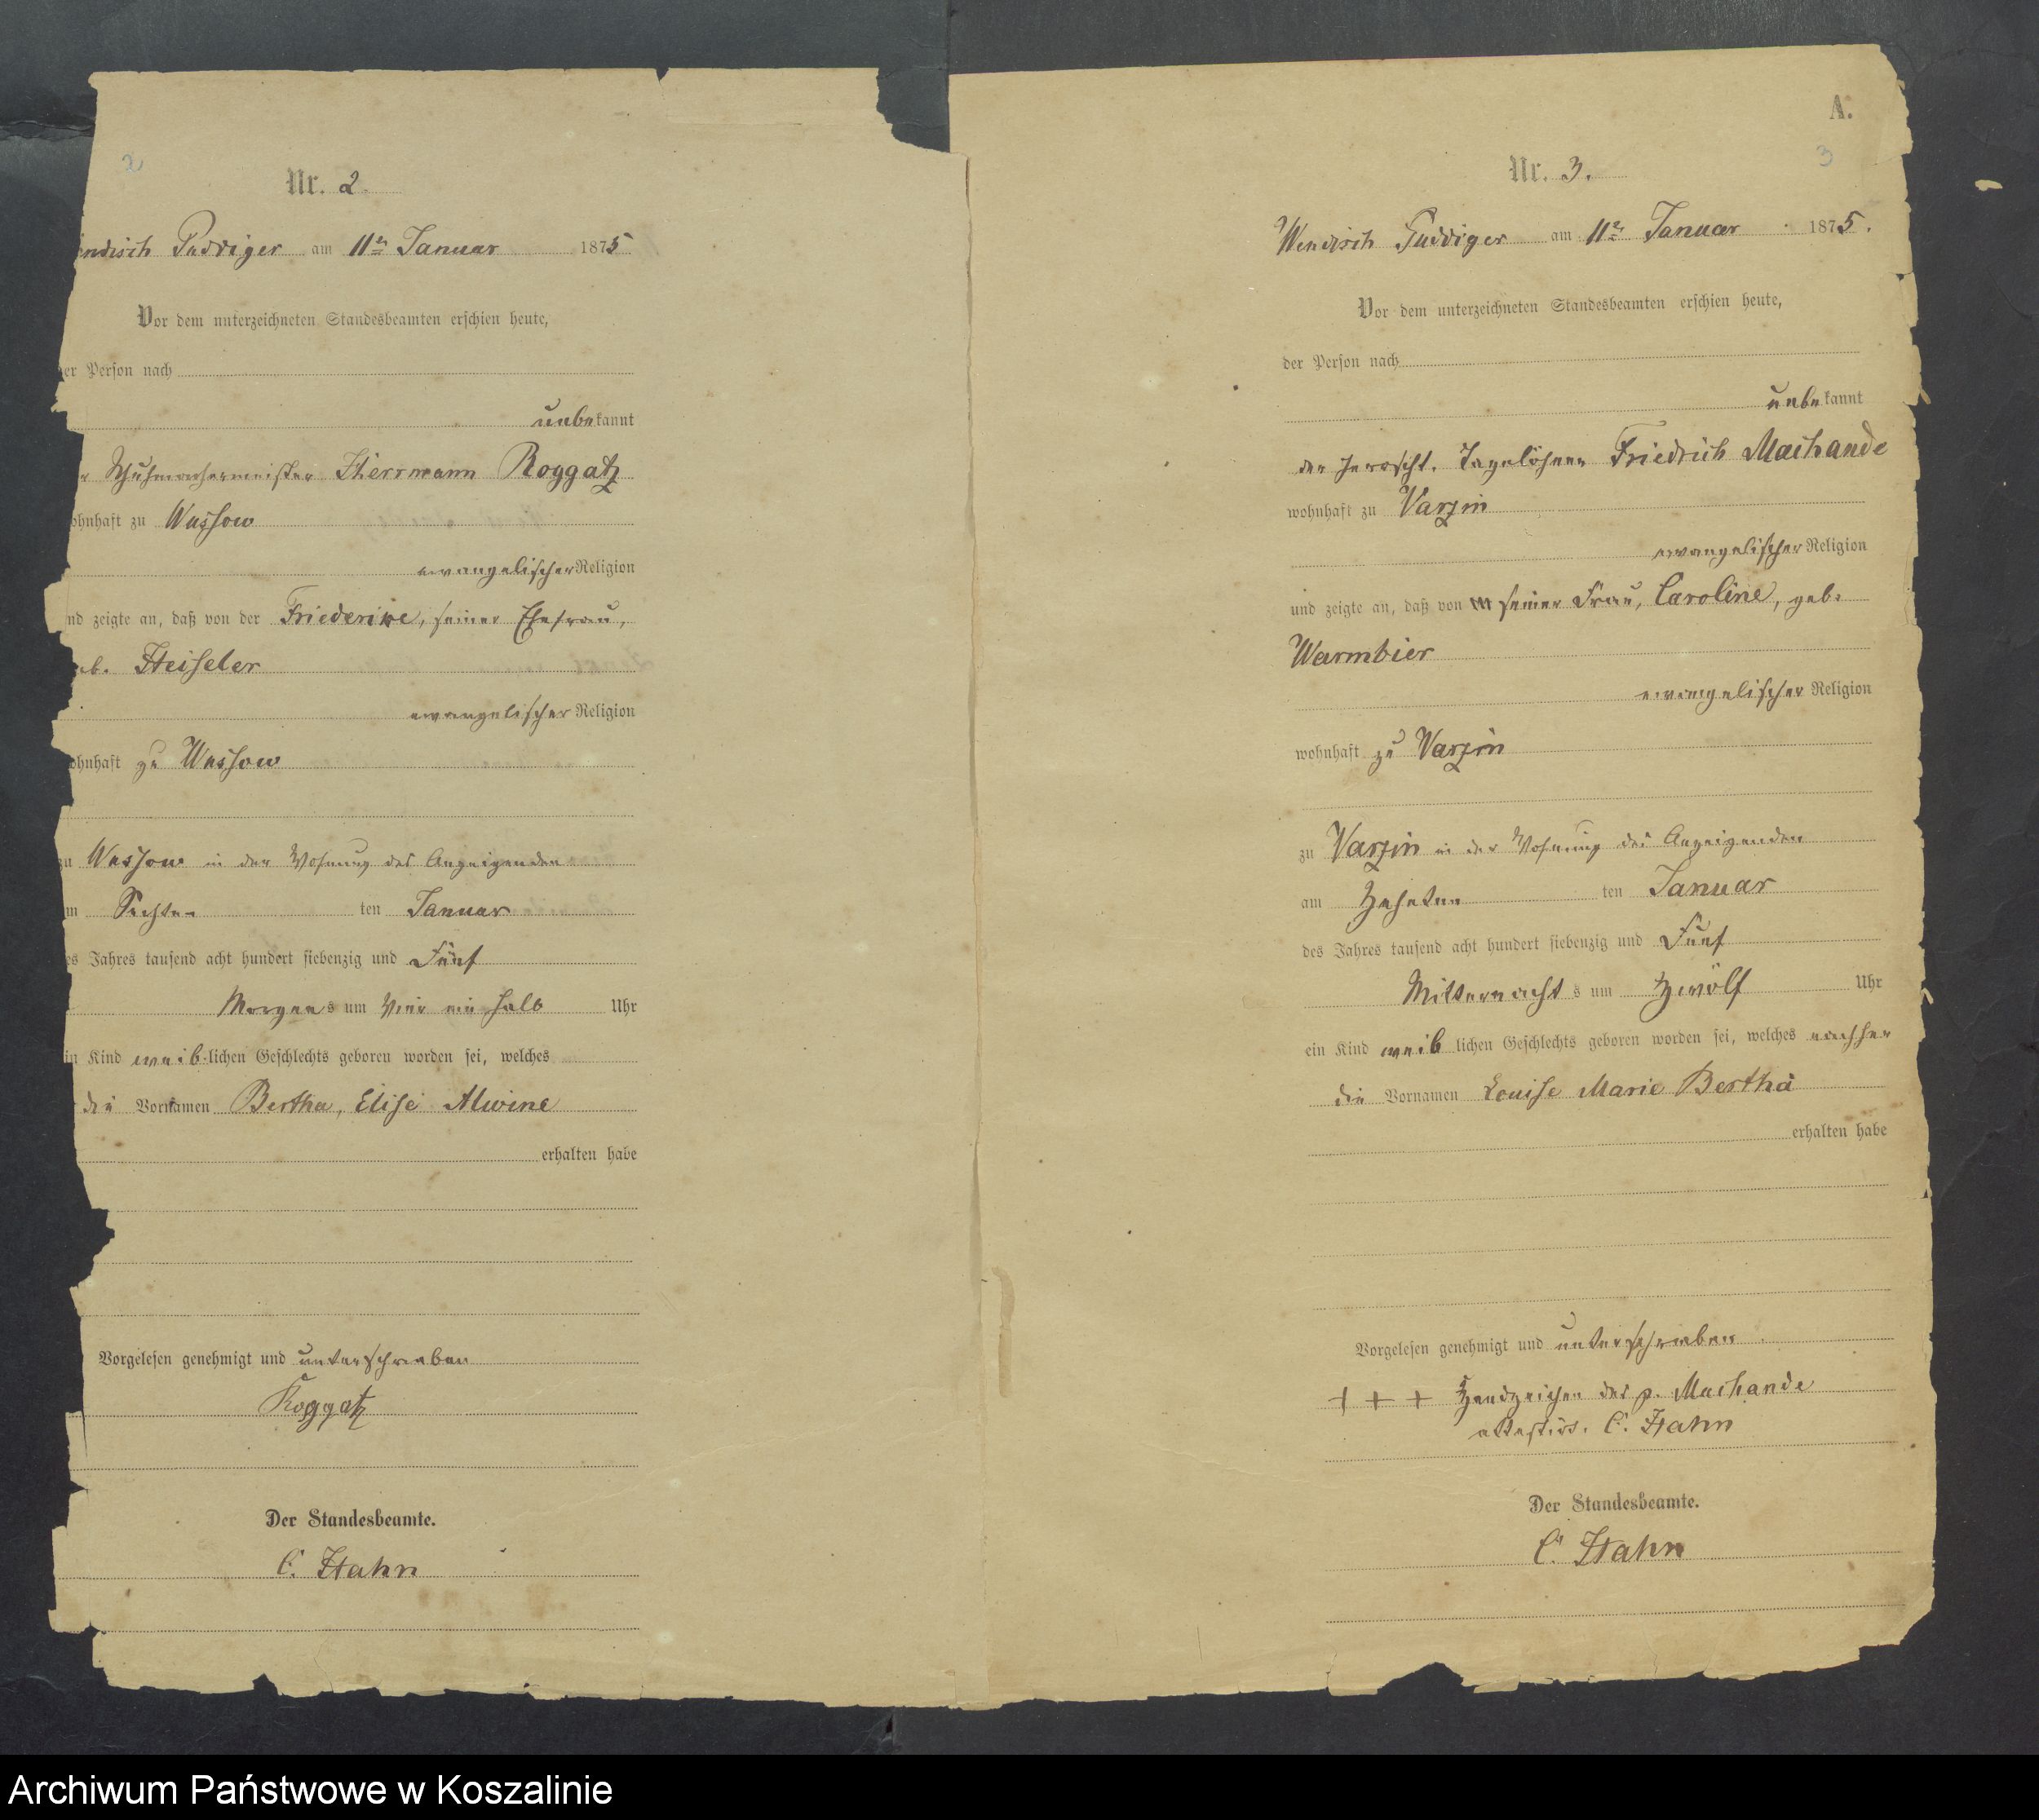 2
Nr. 2.
endisch Puddiger am 11ten Januar 1875
Vor dem unterzeichneten Standesbeamten erschien heute,
er Person nach
unbekannt
r Schuhmachermeister Herrmann Roggatz
ohnhaft zu Wussow
evangelischer Religion
nd zeigte an, daß von der Friederike, seiner Ehefrau,
eb. Heiseler
evangelischer Religion
ohnhaft zu Wussow
zu Wussow in der Wohnung des Anzeigenden
m Sechsten ten Januar
es Jahres tausend acht hundert siebenzig und Fünf
Morgens um Vier ein halb Uhr
in Kind weiblichen Geschlechts geboren worden sei, welches
die Vornamen Bertha, Elise Alwine
erhalten habe
Vorgelesen genehmigt und unterschrieben
Roggatz
Der Standesbeamte.
C. Hahn
A.
3
Nr. 3.
Wendisch Puddiger am 11ten Januar 1875.
Vor dem unterzeichneten Standesbeamten erschien heute,
der Person nach
unbekannt
der herrscht. Tagelöhner Friedrich Machande
wohnhaft zu Varzin
evangelischer Religion
und zeigte an, daß von seiner Frau, Caroline, geb.
Warmbier
evangelischer Religion
wohnhaft zu Varzin
zu Varzin in der Wohnung des Anzeigenden
am Zehnten ten Januar
des Jahres tausend acht hundert siebenzig und Fünf
Mitternachts um Zwölf Uhr
ein Kind weiblichen Geschlechts geboren worden sei, welches nachher
die Vornamen Louise Marie Bertha
erhalten habe
Vorgelesen genehmigt und unterschrieben
+ + + Handzeichen des p. Machande
attestirt. C. Hahn
Der Standesbeamte.
C. Hahn
Archiwum Państwowe w Koszalinie